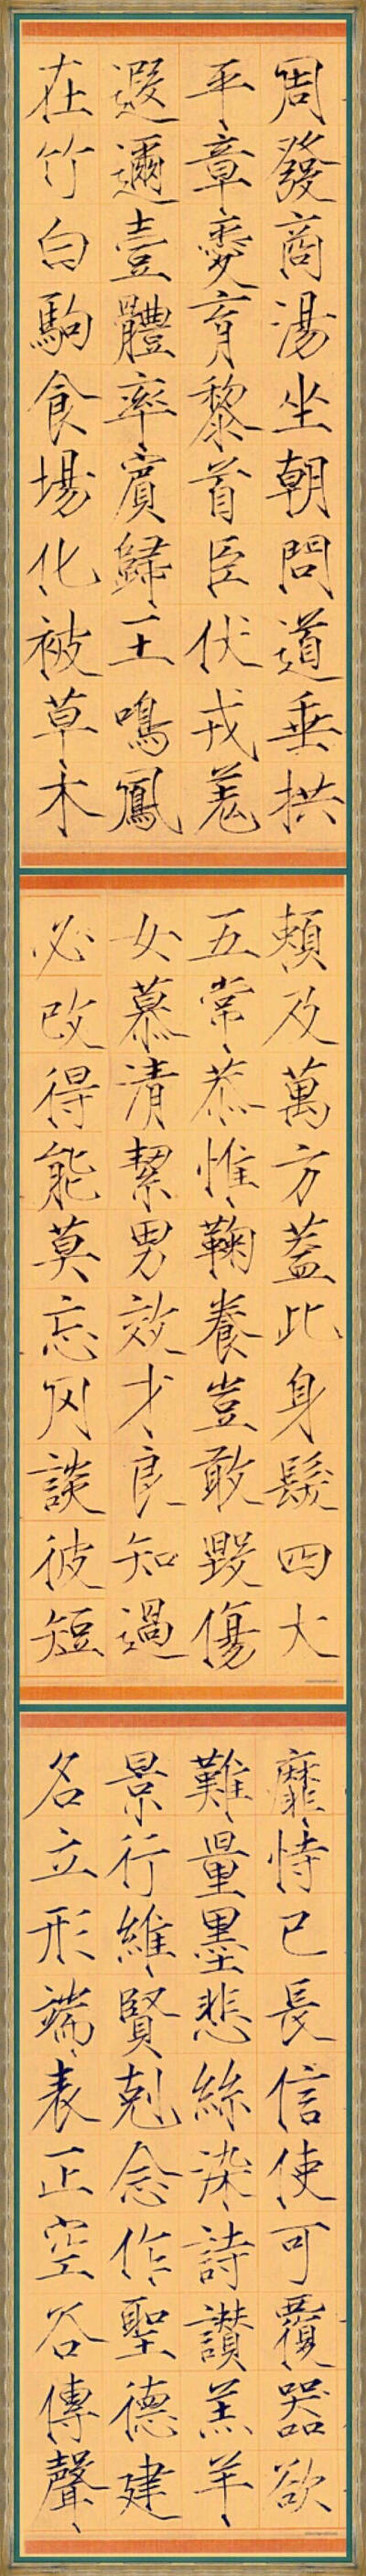 周發商湯坐朝問道垂拱
平章愛育黎首臣伏戎羌
遐邇壹體率賓歸王鳴鳳
在竹白駒食場化被草木
賴及萬方蓋此身髮四大
五常恭惟鞠養豈敢毀傷
女慕清絜男效才良知過
必改得能莫忘罔談彼短
靡恃己長信使可覆器欲
難量墨悲絲染詩讚羔羊
景行維賢剋念作聖德建
名立形端表正空谷傳聲